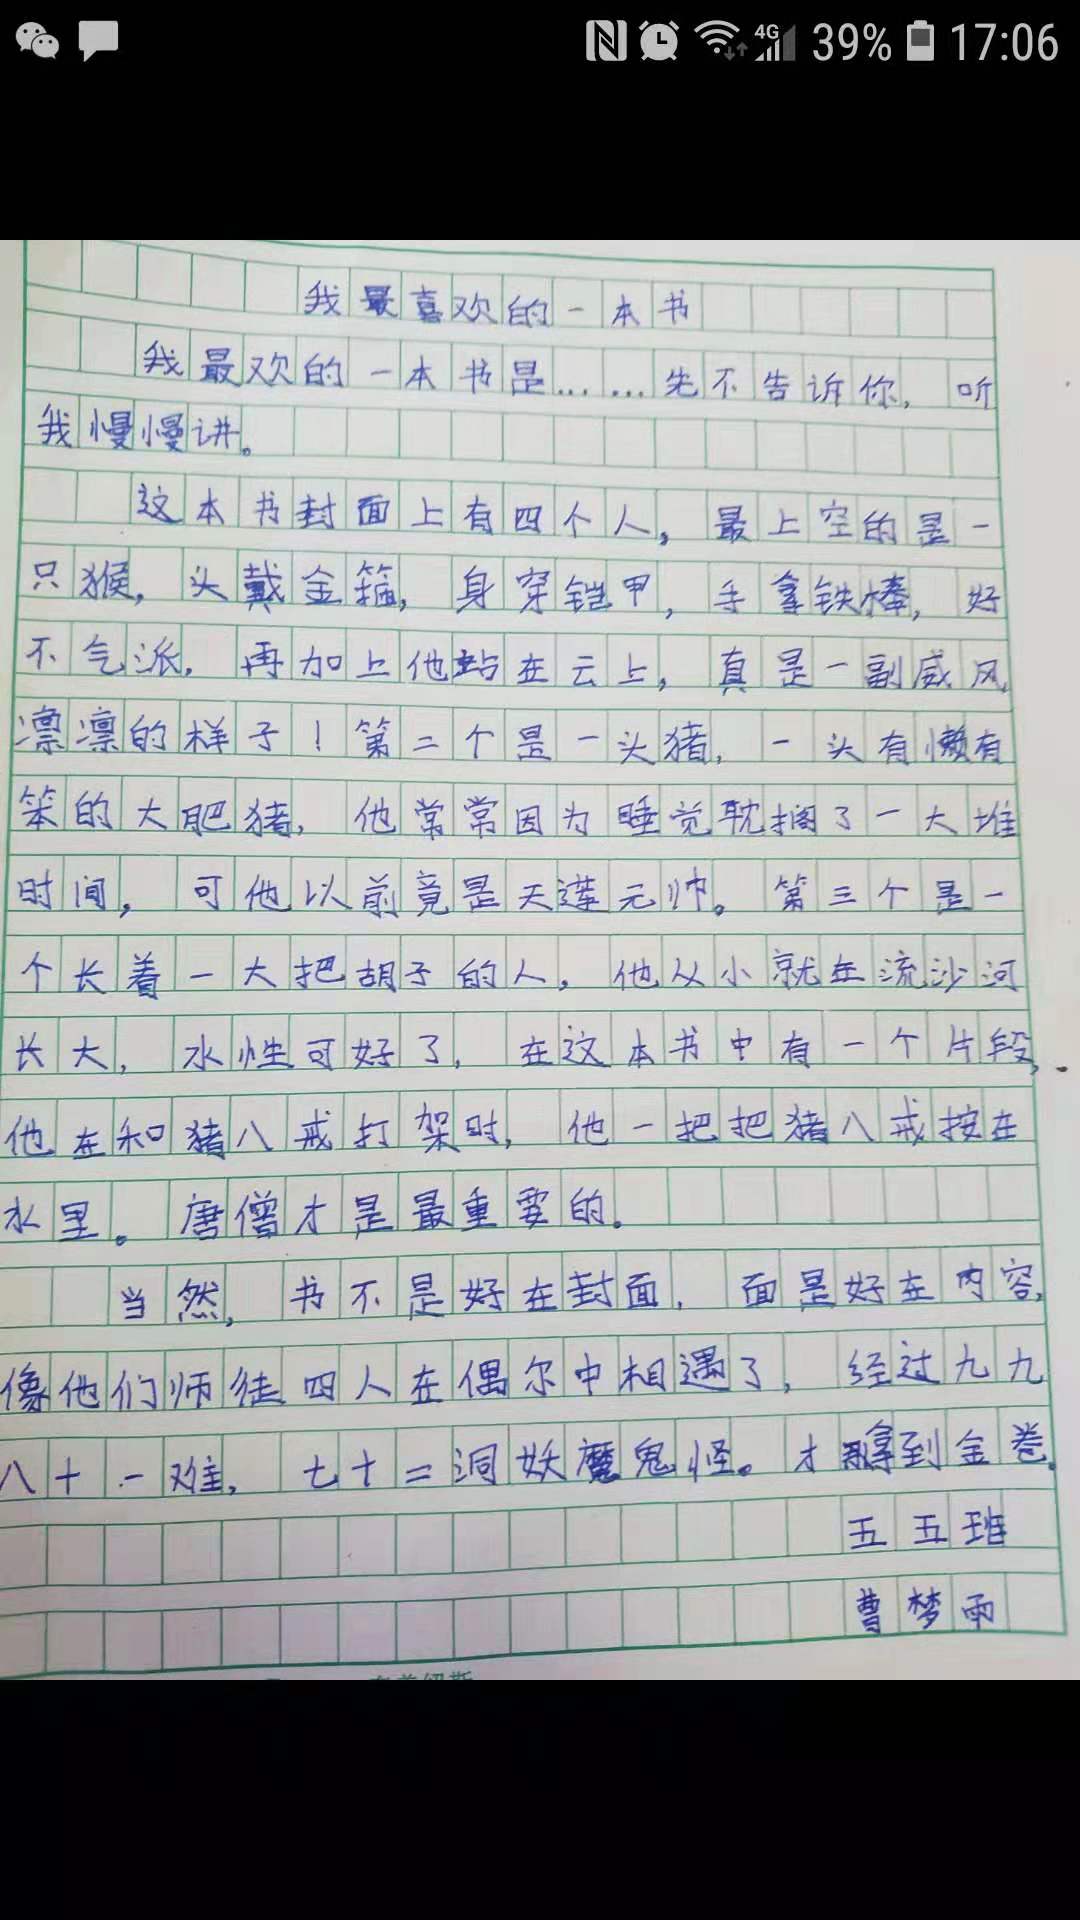 4G 39% 17:06
我最喜欢的一本书
我最欢的一本书是……先不告诉你,听
我慢慢讲。
这本书封面上有四个人,最上空的是一
只猴,头戴金箍,身穿铠甲,手拿铁棒,好
不气派,再加上他站在云上,真是一副威风
凛凛的样子!第二个是一头猪,一头有懒有
笨的大肥猪,他常常因为睡觉耽搁了一大堆
时间,可他以前竟是天莲元帅。第三个是一
个长着一大把胡子的人,他从小就在流沙河
长大,水性可好了,在这本书中有一个片段,
他在和猪八戒打架时,他一把把猪八戒按在
水里。唐僧才是最重要的。
当然,书不是好在封面,面是好在内容,
像他们师徒四人在偶尔中相遇了,经过九九
八十一难,七十二洞妖魔鬼怪。才拿到金卷。
五五班
曹梦雨